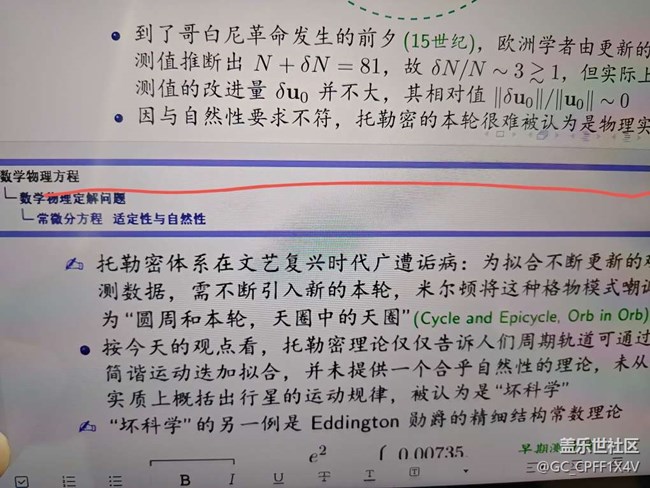 到了哥白尼革命发生的前夕 (15世纪)，欧洲学者由更新的
测值推断出 N + δN = 81，故 δN/N ∼ 3 ≳ 1，但实际上
测值的改进量 δu₀ 并不大，其相对值 ‖δu₀‖/‖u₀‖ ∼ 0
因与自然性要求不符，托勒密的本轮很难被认为是物理实
数学物理方程
数学物理定解问题
常微分方程 适定性与自然性
托勒密体系在文艺复兴时代广遭诟病：为拟合不断更新的观
测数据，需不断引入新的本轮，米尔顿将这种格物模式嘲讽
为“圆周和本轮，天圈中的天圈”(Cycle and Epicycle, Orb in Orb)
按今天的观点看，托勒密理论仅仅告诉人们周期轨道可通过
简谐运动迭加拟合，并未提供一个合乎自然性的理论，未从
实质上概括出行星的运动规律，被认为是“坏科学”
“坏科学”的另一例是 Eddington 勋爵的精细结构常数理论
e² 0.00735 早期测
B I U T T T
盖乐世社区
@GC_CPFF1X4V